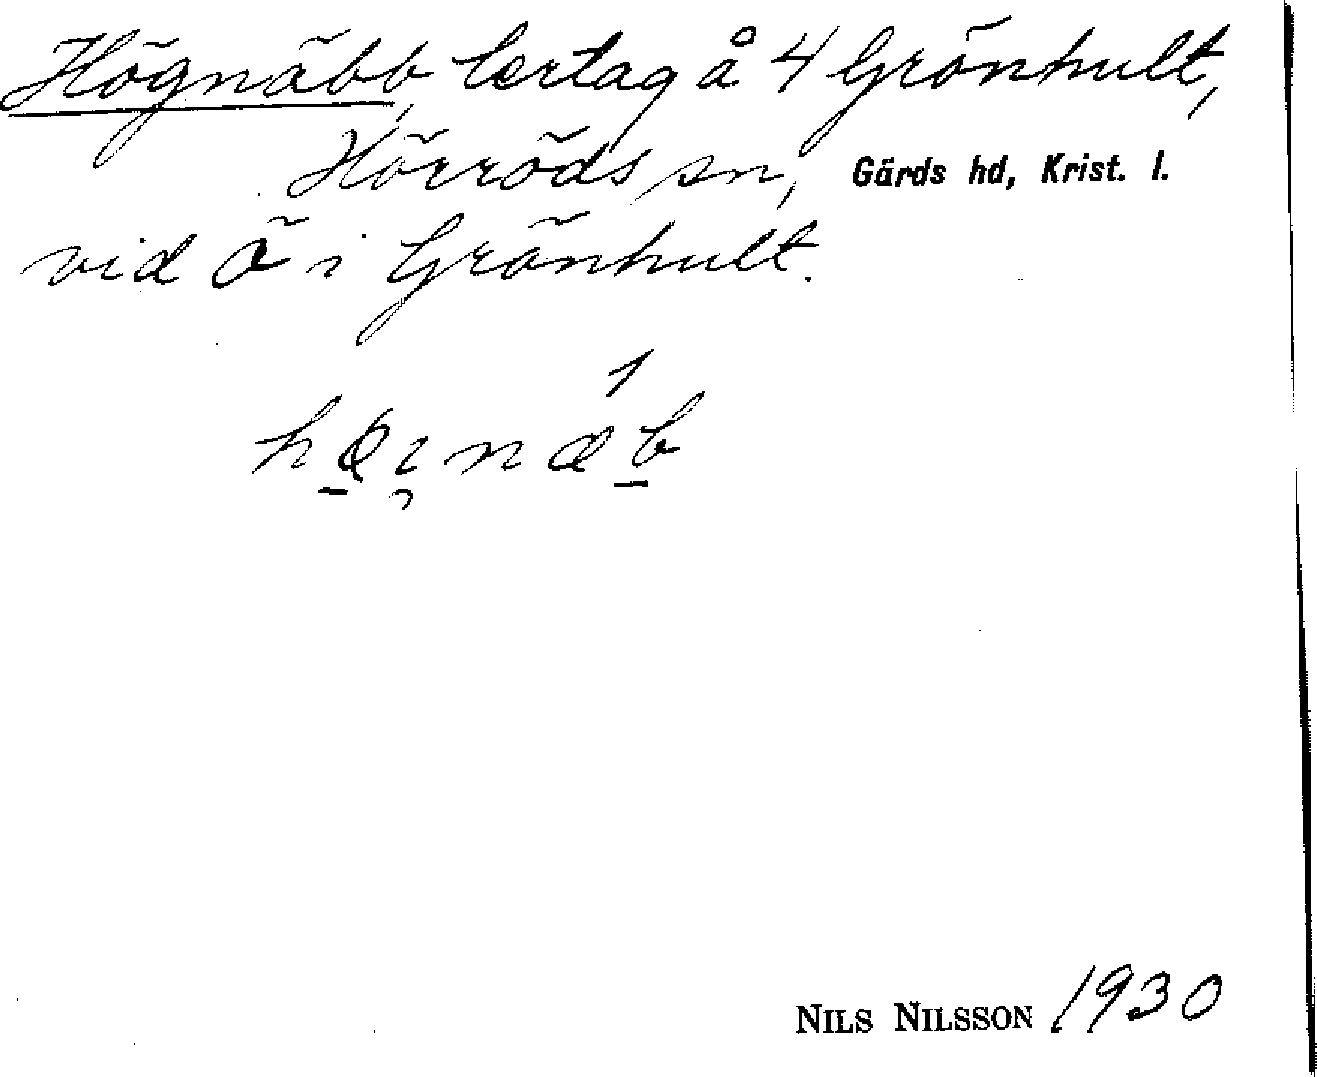 Högnäbb, lertag å 4 Grönhult,
Hörröds sn, Gärds hd, Krist. l.
vid Ö i Grönhult.
NILS NILSSON 1930